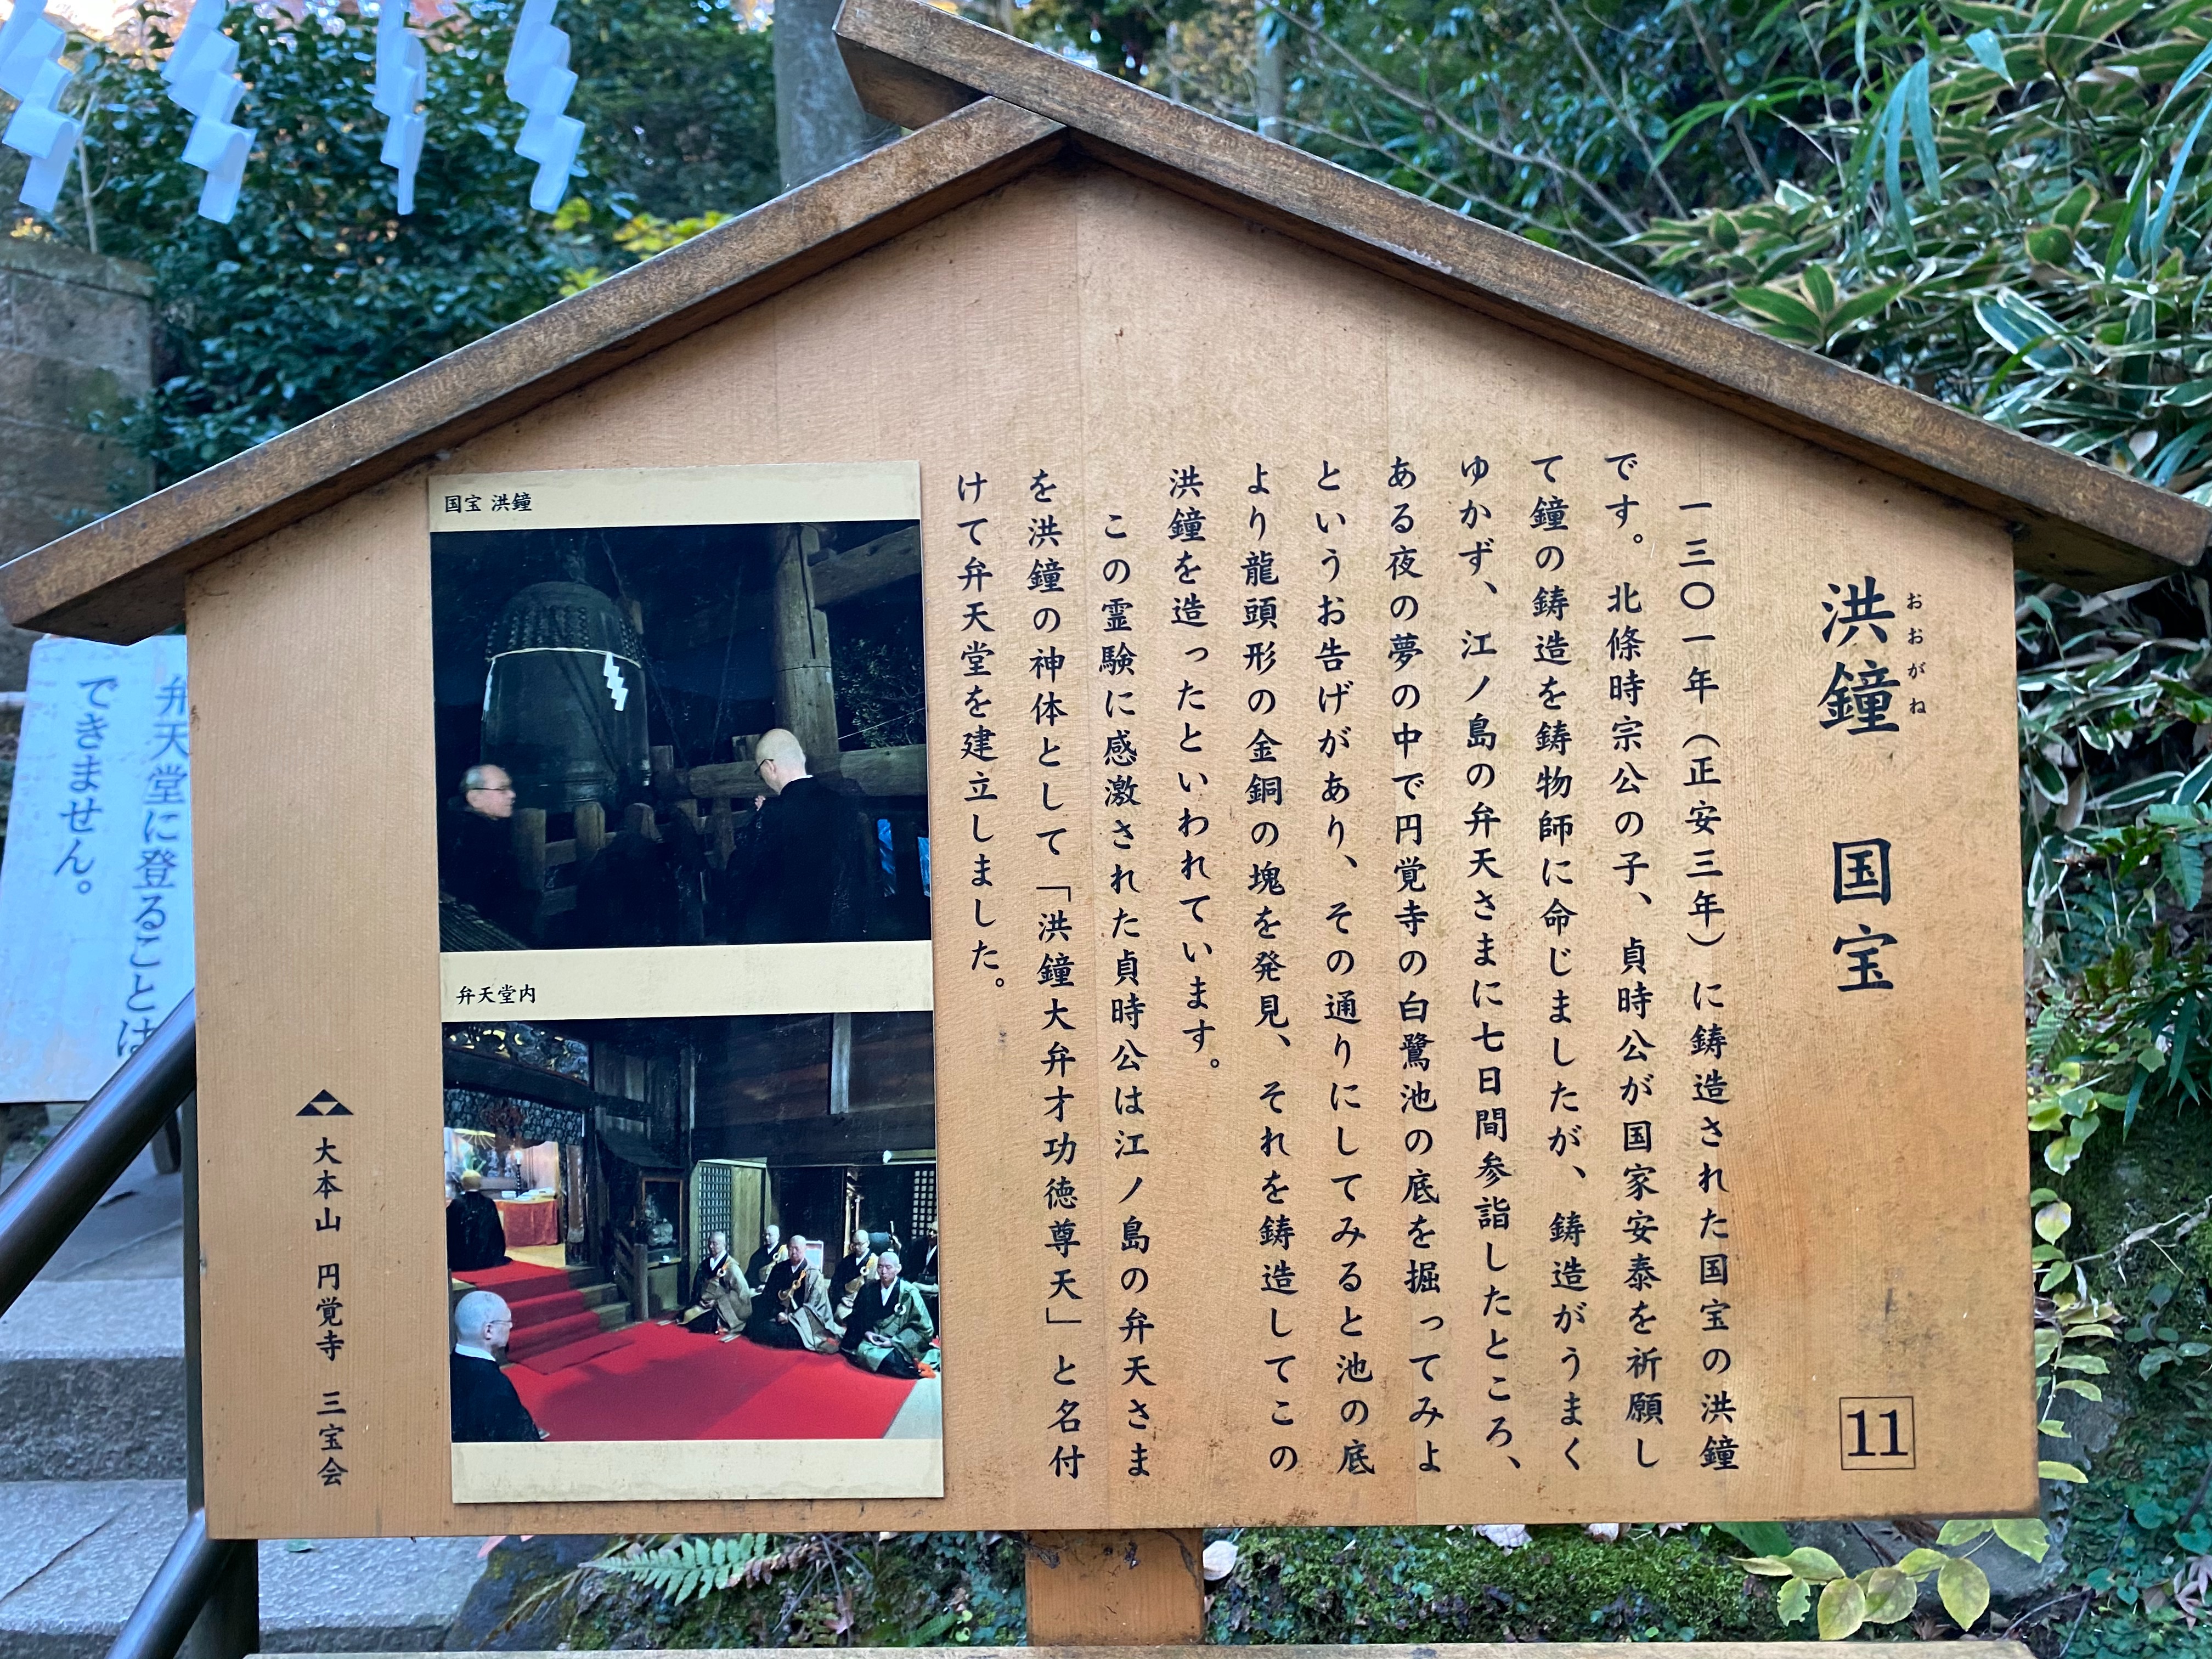 洪鐘 国宝
おおがね
11
一三〇一年（正安三年）に鋳造された国宝の洪鐘
です。北條時宗公の子、貞時公が国家安泰を祈願し
て鐘の鋳造を鋳物師に命じましたが、鋳造がうまく
ゆかず、江ノ島の弁天さまに七日間参詣したところ、
ある夜の夢の中で円覚寺の白鷺池の底を掘ってみよ
というお告げがあり、その通りにしてみると池の底
より龍頭形の金銅の塊を発見、それを鋳造してこの
洪鐘を造ったといわれています。
この霊験に感激された貞時公は江ノ島の弁天さま
を洪鐘の神体として「洪鐘大弁才功徳尊天」と名付
けて弁天堂を建立しました。
国宝 洪鐘
弁天堂内
大本山 円覚寺 三宝会
弁天堂に登ることは
できません。